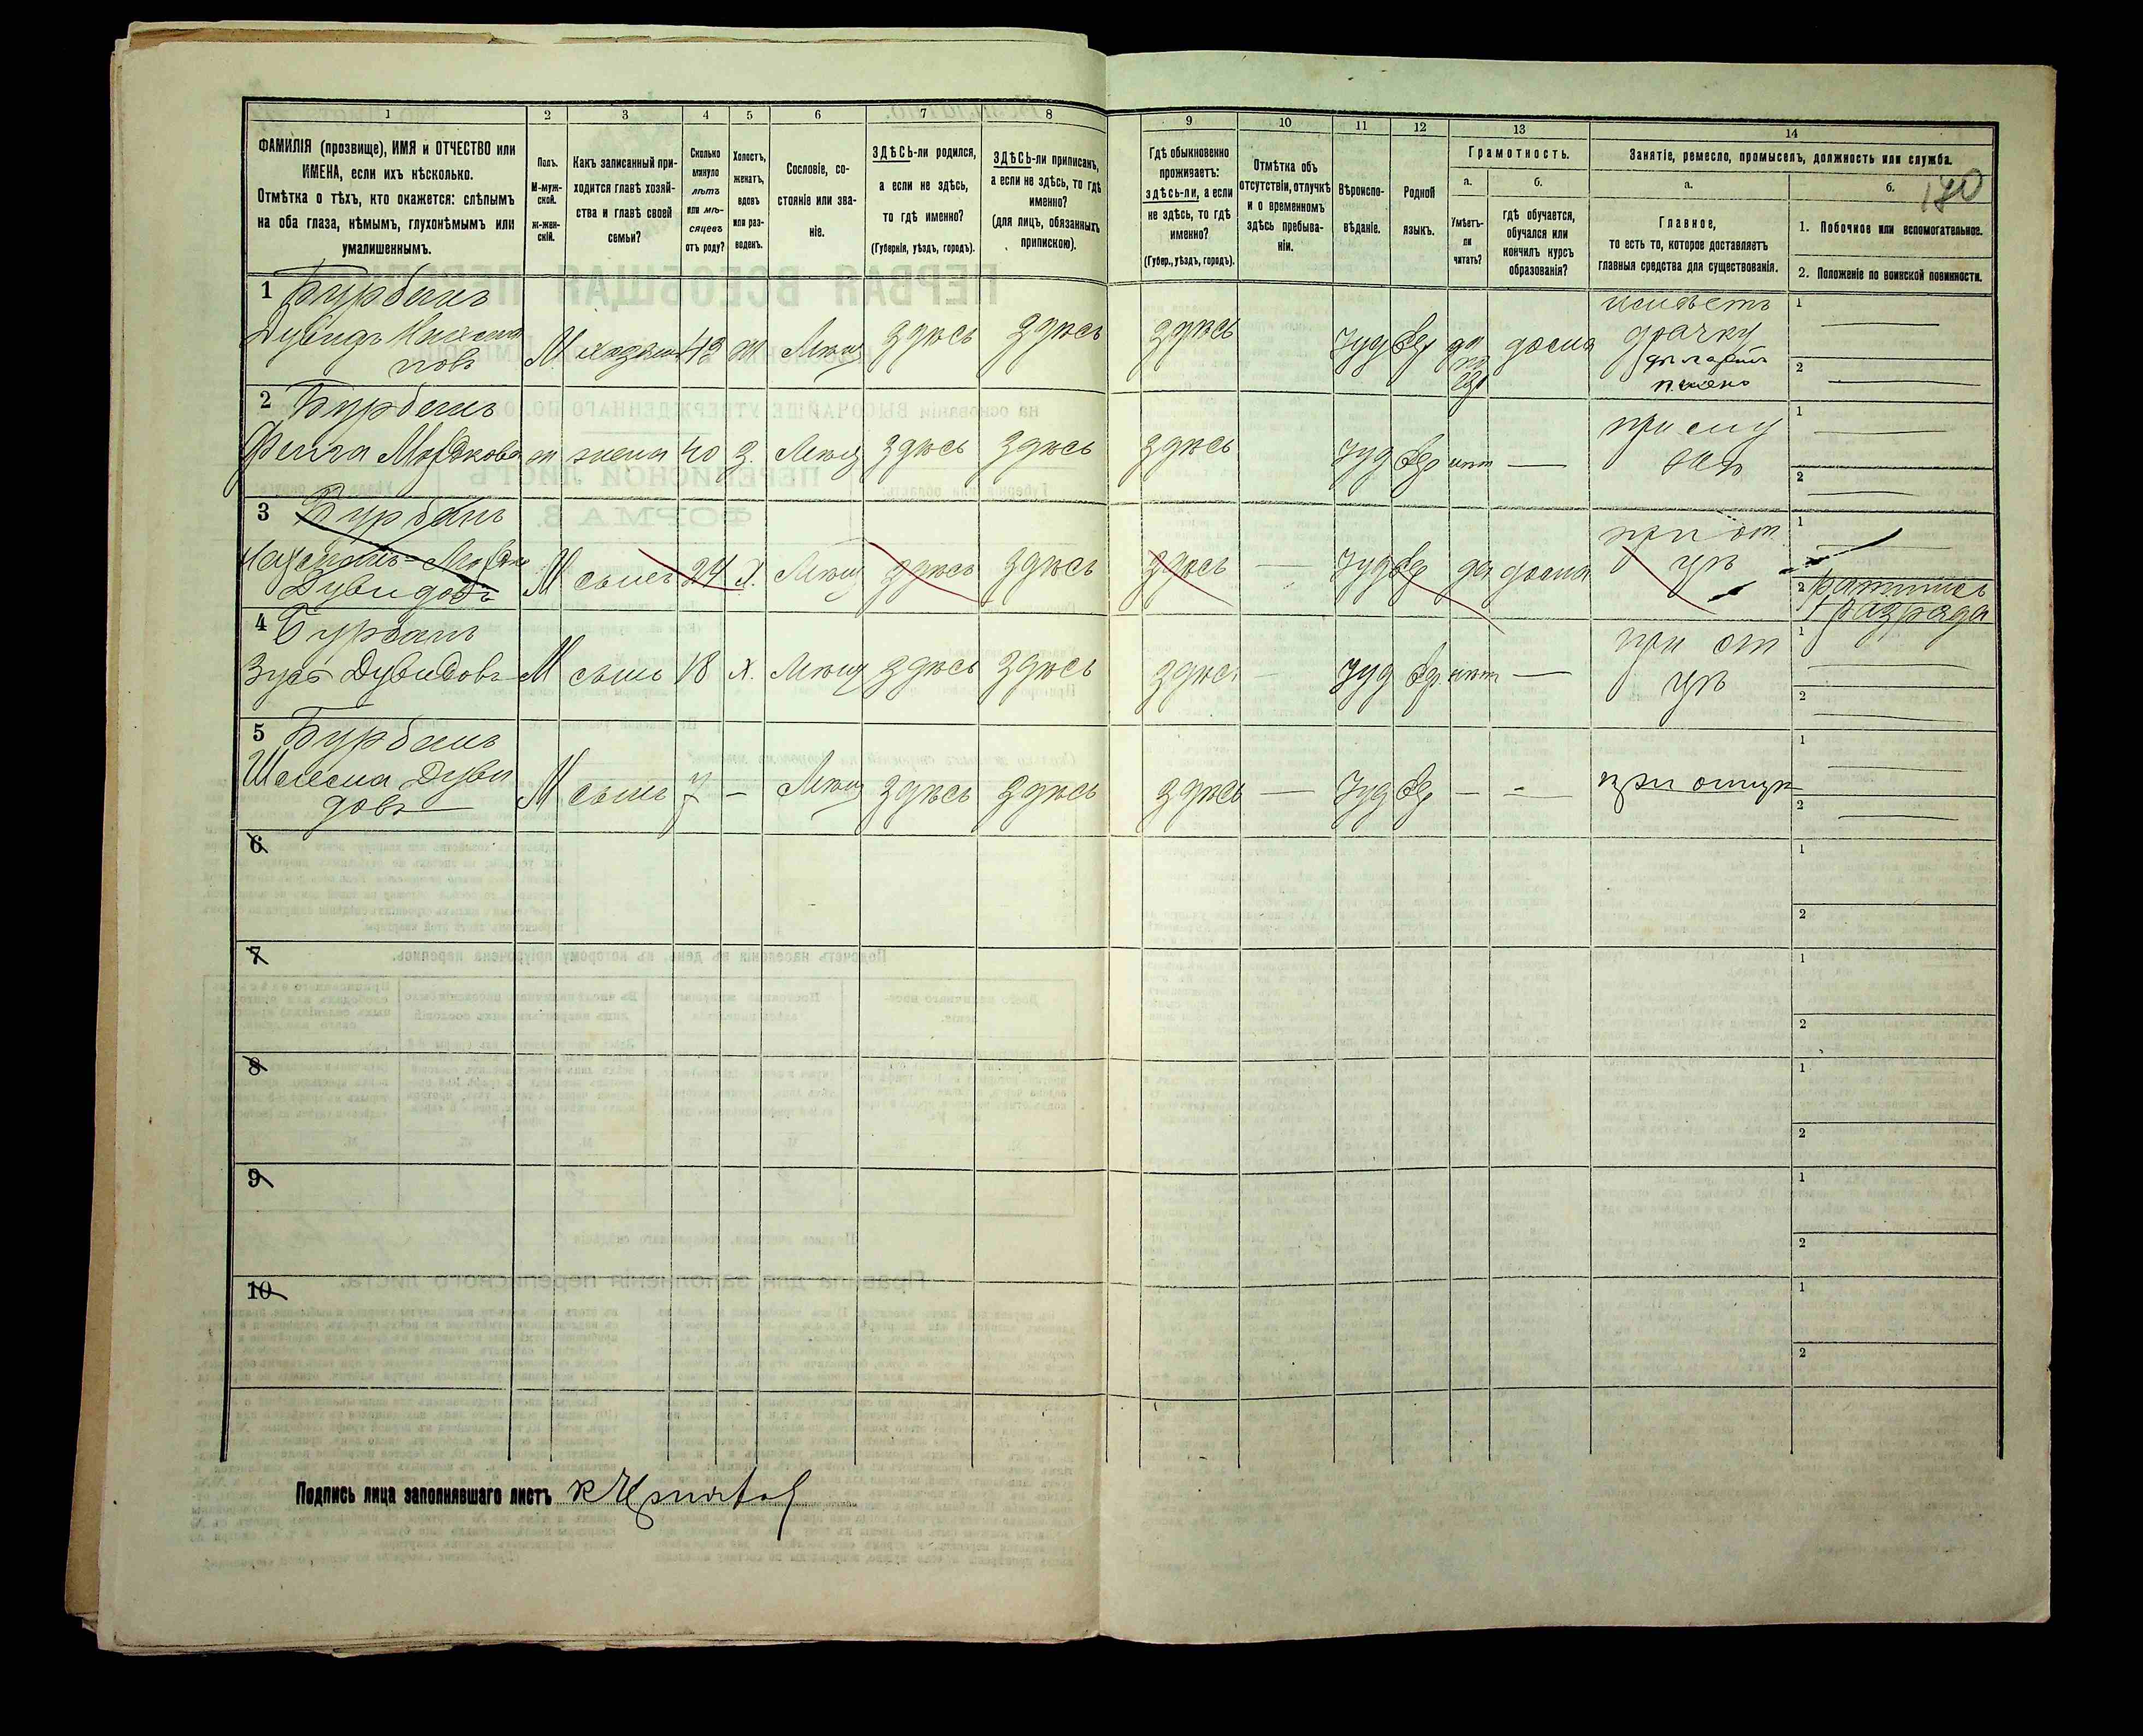 170
1
ФАМИЛІЯ (прозвище), ИМЯ и ОТЧЕСТВО или
ИМЕНА, если ихъ нѣсколько.
Отмѣтка о тѣхъ, кто окажется: слѣпымъ
на оба глаза, нѣмымъ, глухонѣмымъ или
умалишеннымъ.
2
Полъ.
М-муж-
ской.
ж-жен-
скій.
3
Какъ записанный при-
ходится главѣ хозяй-
ства и главѣ своей
семьи?
4
Сколько
минуло
лѣтъ
или мѣ-
сяцевъ
отъ роду?
5
Холостъ,
женатъ,
вдовъ
или раз-
веденъ.
6
Сословіе, со-
стояніе или зва-
ніе.
7
ЗДѢСЬ-ли родился,
а если не здѣсь,
то гдѣ именно?
(Губернія, уѣздъ, городъ).
8
ЗДѢСЬ-ли приписанъ,
а если не здѣсь, то гдѣ
именно?
(для лицъ, обязанныхъ
припискою).
9
Гдѣ обыкновенно
проживаетъ:
здѣсь-ли, а если
не здѣсь, то гдѣ
именно?
(Губер., уѣздъ, городъ).
10
Отмѣтка объ
отсутствіи, отлучкѣ
и о временномъ
здѣсь пребыва-
ніи.
11
Вѣроиспо-
вѣданіе.
12
Родной
языкъ.
13
Грамотность.
а.
Умѣетъ-
ли
читать?
б.
гдѣ обучается,
обучался или
кончилъ курсъ
образованія?
14
Занятіе, ремесло, промыселъ, должность или служба.
а.
Главное,
то есть то, которое доставляетъ
главныя средства для существованія.
б.
1. Побочное или вспомогательное.
2. Положеніе по воинской повинности.
1 Бурбанъ
Дувидъ
М хозяинъ ж Мѣщ здѣсь здѣсь здѣсь Іуд Евр да дома
имѣетъ
драчку
дѣлаетъ
пшено
1
2
2 Бурбанъ
Фейга Мордкова
ж жена 40 з. Мѣщ здѣсь здѣсь здѣсь Іуд Евр нѣт —
при му
жѣ
1
2
3 Бурбанъ
Дувидовъ
М сынъ 24 х. Мѣщ здѣсь здѣсь здѣсь — Іуд Евр да дома
при от
цѣ
1
2 ратникъ
1 разряда
4 Бурбанъ
Зусь Дувидовъ
М сынъ 18 х. Мѣщ здѣсь здѣсь здѣсь — Іуд Евр нѣт —
при от
цѣ
1
2
5 Бурбанъ
Дуви
довъ
М сынъ 7 — Мѣщ здѣсь здѣсь здѣсь — Іуд Евр — — при отцѣ
1
2
6
1
2
7
1
2
8
1
2
9
1
2
10
1
2
Подпись лица заполнявшаго листъ